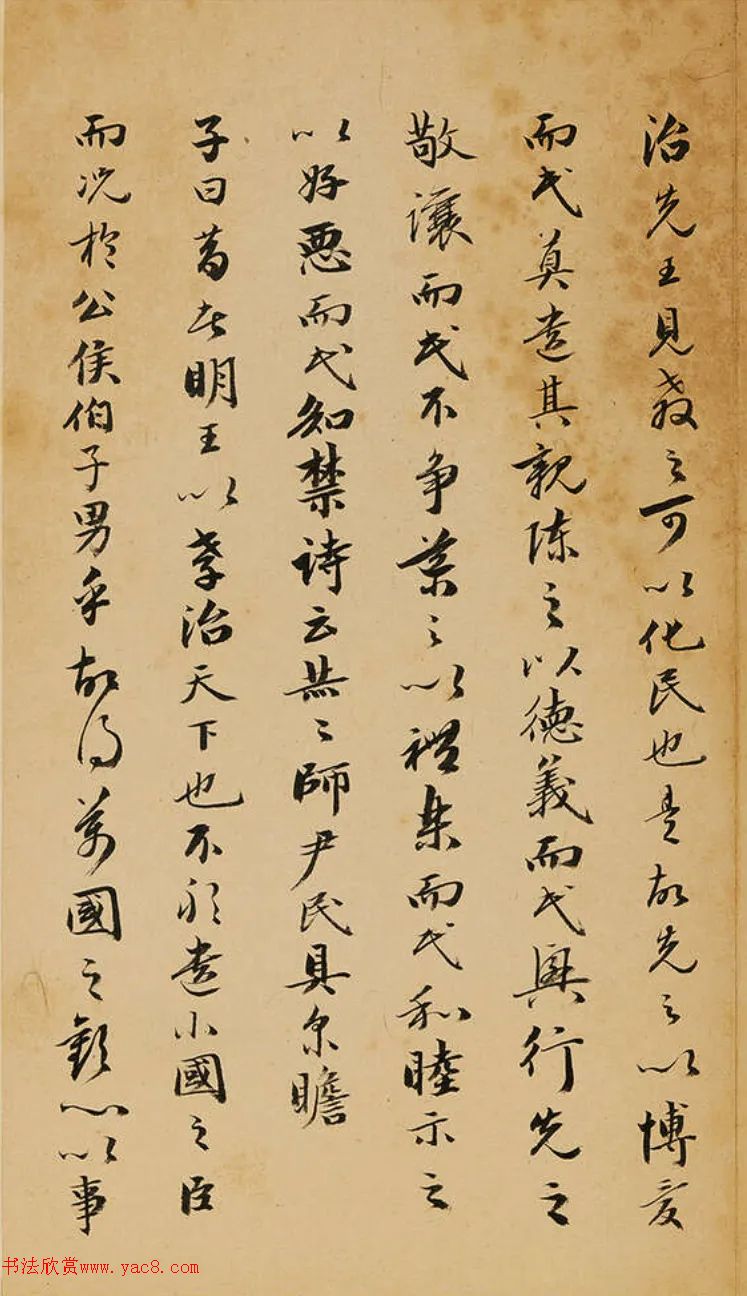 治先王見教之可以化民也是故先之以博愛
而民莫遺其親陳之以德義而民興行先之
敬讓而民不争導之以禮樂而民和睦示之
以好惡而民知禁詩云赫〻師尹民具尔瞻
子曰昔者明王以孝治天下也不敢遺小國之臣
而況於公侯伯子男乎故得萬國之歡心以事
书法欣赏www.yac8.com